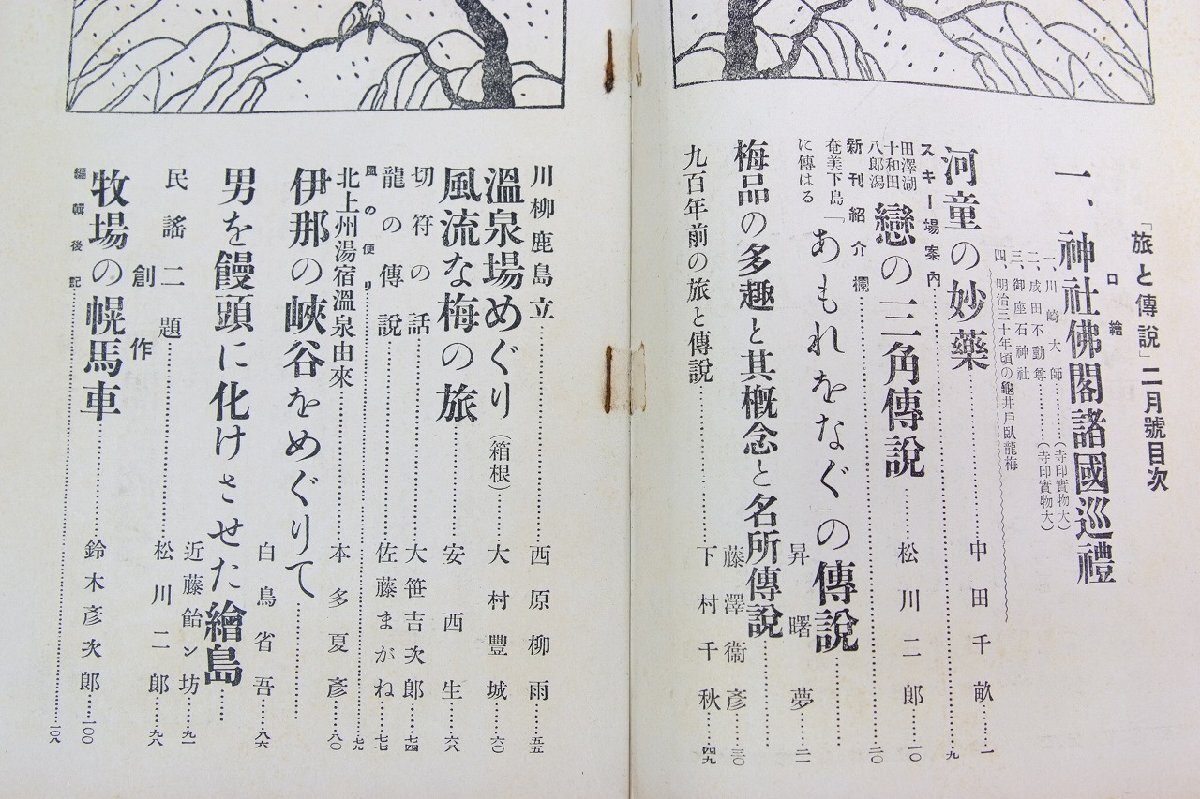 「旅と傳說」二月號目次
口繪
一、神社佛閣諸國巡禮
一、川崎大師………（寺印實物大）
二、成田不動尊………（寺印實物大）
三、御座石神社
四、明治三十年頃の龜井戶臥龍梅
河童の妙藥………中田千畝……一
スキー場案內………九
田澤湖
十和田
八郞潟
戀の三角傳說……松川二郞……一〇
新刊紹介欄………二〇
奄美下島
に傳はる
「あもれをなぐの傳說………昇曙夢……二一
梅品の多趣と其槪念と名所傳說……藤澤衞彥……三〇
九百年前の旅と傳說………下村千秋……四九
川柳鹿島立………西原柳雨……五五
溫泉場めぐり（箱根）……大村豐城……六〇
風流な梅の旅………安西生……六八
切符の話………大笹吉次郞……七四
龍の傳說………佐藤まがね……七七
風の便り………七九
北上州湯宿溫泉由來………本多夏彥……八〇
伊那の峽谷をめぐりて………白鳥省吾……八六
男を饅頭に化けさせた繪島……近藤飴ン坊……九一
民謠二題………松川二郞……九八
創作
牧場の幌馬車………鈴木彥次郞……一〇〇
編輯後記………一〇八